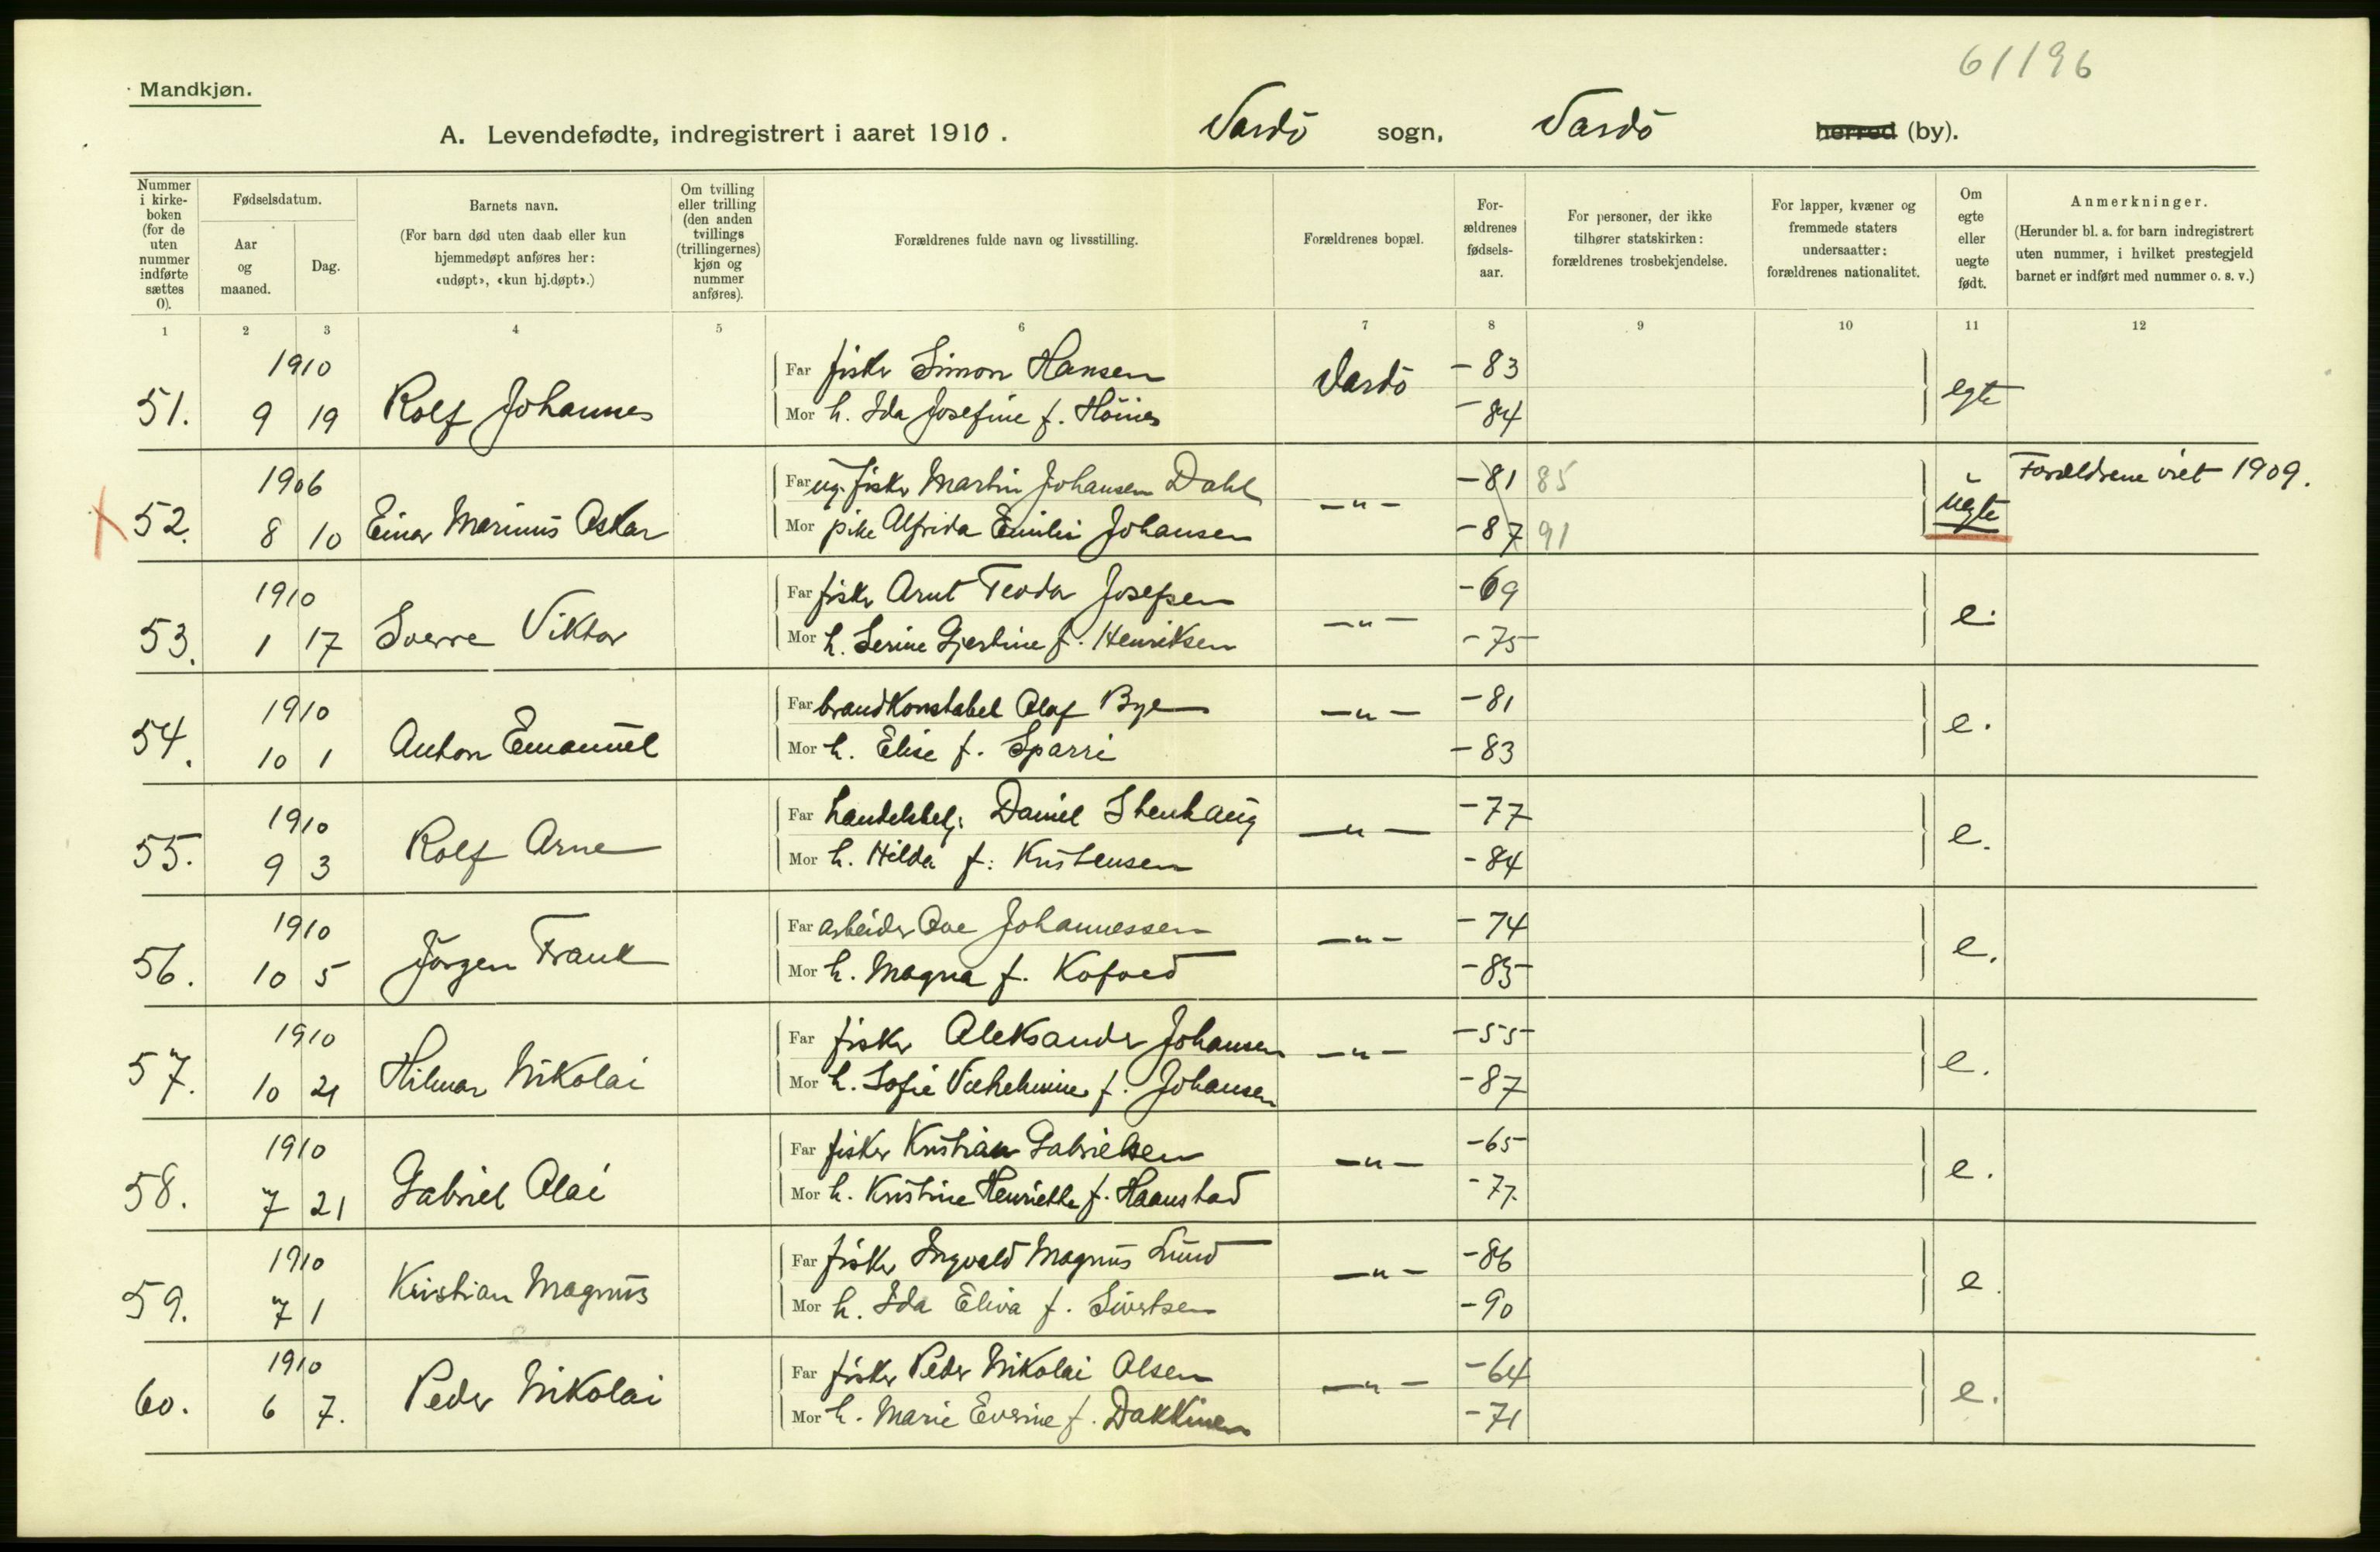 61196
Mandkjøn.
A. Levendefødte, indregistrert i aaret 1910. Vardö sogn, Vardö herred (by).
Nummer i kirke-boken (for de uten nummer indførte sættes 0).
Fødselsdatum.
Aar og maaned.
Dag.
Barnets navn.
(For barn død uten daab eller kun hjemmedøpt anføres her: «udøpt», «kun hj.døpt».)
Om tvilling eller trilling (den anden tvillings (trillingernes) kjøn og nummer anføres).
Forældrenes fulde navn og livsstilling.
Forældrenes bopæl.
For-ældrenes fødsels-aar.
For personer, der ikke tilhører statskirken: forældrenes trosbekjendelse.
For lapper, kvæner og fremmede staters undersaatter: forældrenes nationalitet.
Om egte eller uegte født.
Anmerkninger.
(Herunder bl. a. for barn indregistrert uten nummer, i hvilket prestegjeld barnet er indført med nummer o. s. v.)
1 2 3 4 5 6 7 8 9 10 11 12
1910 Far fisker Simon Hansen Vardö -83
51. 9 19 Rolf Johannes Mor h. Ida Josefine f. -84 egte
1906 Far ug. fisker Martin Johansen Dahl -"- -81 85 Forældrene viet 1909.
X 52. 8 10 Einar Marinus Oskar Mor pike Alfrida Emilie Johansen -87 91 uegte
1910 Far fisker Arnt Teodor Josefsen -"- -69
53. 1 17 Sverre Viktor Mor h. Serine Gjertine f. Henriksen -75 e.
1910 Far brandkonstabel Olaf Bye -"- -81
54. 10 1 Anton Emanuel Mor h. Elise f. Sparri -83 e.
1910 Far handelsbetj. Daniel Stenhaug -"- -77
55. 9 3 Rolf Arne Mor h. Hilda f. Kristensen -84 e.
1910 Far arbeider Ove Johannessen -"- -74
56. 10 5 Jörgen Frank Mor h. Magna f. Kofoed -85 e.
1910 Far fisker Aleksander Johansen -"- -55
57. 10 21 Hilmar Nikolai Mor h. Sofie Vilhelmine f. Johansen -87 e.
1910 Far fisker Kristian Gabrielsen -"- -65
58. 7 21 Gabriel Olai Mor h. Kristine Henriette f. Haanstad -77. e.
1910 Far fisker Ingvald Magnus Lund -"- -86
59. 7 1 Kristian Magnus Mor h. Ida Eliva f. Sivertsen -90 e.
1910 Far fisker Peder Nikolai Olsen -"- -64
60. 6 7. Peder Nikolai Mor h. Marie Evrine f. Dakkinen -71 e.